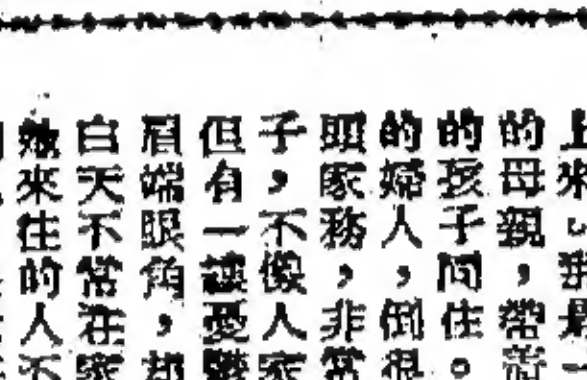 上來。
的母親，帶
的孩子同住。
的婦人，倒很
頭家務，非常
子，不像人家
但有一憂
眉端眼角，却
白天不常在家
她來往的人不